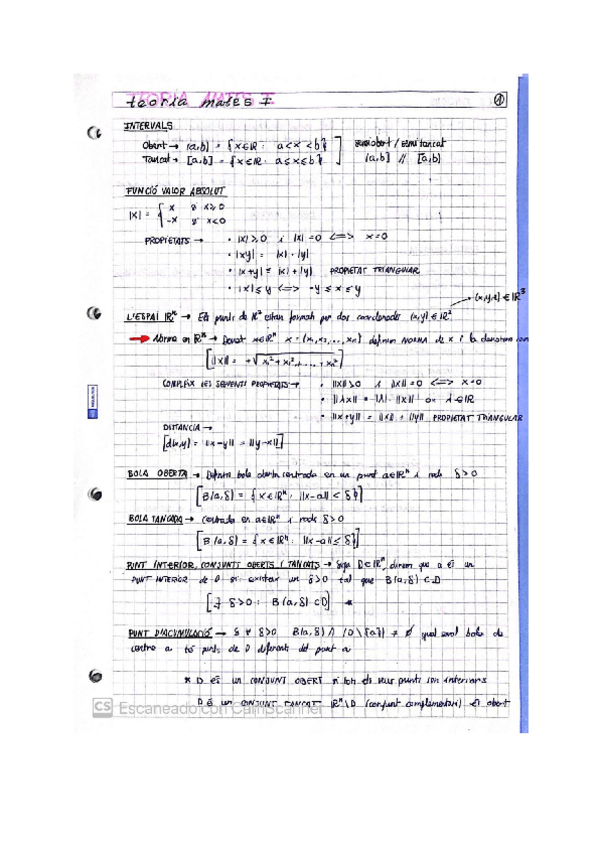 teoria mates I
1
INTERVALS
Obert → (a,b) = {x∈ℝ : a<x<b} semiobert / semitancat
Tancat → [a,b] = {x∈ℝ: a≤x≤b} (a,b] // [a,b)
FUNCIÓ VALOR ABSOLUT
|x| = { x si x≥0
-x si x<0
PROPIETATS → • |x|≥0 i |x|=0 <=> x=0
• |xy| = |x|·|y|
• |x+y| ≤ |x|+|y| PROPIETAT TRIANGULAR
• |x|≤y <=> -y≤x≤y
(x,y,z)∈ℝ³
L'ESPAI ℝⁿ → Els punts de ℝ² estan formats per dos coordenades (x,y)∈ℝ²
Norma en ℝⁿ → Donat x∈ℝⁿ x=(x₁,x₂,...,xₙ) definim NORMA de x i la denotem com
[||x|| = +√x₁²+x₂²+...+xₙ²]
COMPLEIX LES SEGÜENTS PROPIETATS → • ||x||≥0 i ||x||=0 <=> x=0
• ||λx|| = |λ|·||x|| on λ∈ℝ
• ||x+y|| = ||x|| + ||y|| PROPIETAT TRIANGULAR
DISTANCIA →
[d(x,y) = ||x-y|| = ||y-x||]
BOLA OBERTA → Definim bola oberta centrada en un punt a∈ℝⁿ i radi δ>0
[B(a,δ) = {x∈ℝⁿ: ||x-a||<δ}]
BOLA TANCADA → Centrada en a∈ℝⁿ i radi δ>0
[B(a,δ) = {x∈ℝⁿ: ||x-a||≤δ}]
PUNT INTERIOR, CONJUNTS OBERTS I TANCATS → Siga D⊂ℝⁿ, direm que a és un
PUNT INTERIOR de D si existeix un δ>0 tal que B(a,δ)⊂D
[∃ δ>0: B(a,δ)⊂D] *
PUNT D'ACUMULACIÓ → ∀ δ>0 B(a,δ) ∩ (D\{a}) ≠ ∅ qualsevol bola de
centre a té punts de D diferents del punt a
* D és un CONJUNT OBERT si tots els seus punts són interiors
D és un CONJUNT TANCAT ℝⁿ\D (conjunt complementari) és obert
CS Escaneado con CamScanner